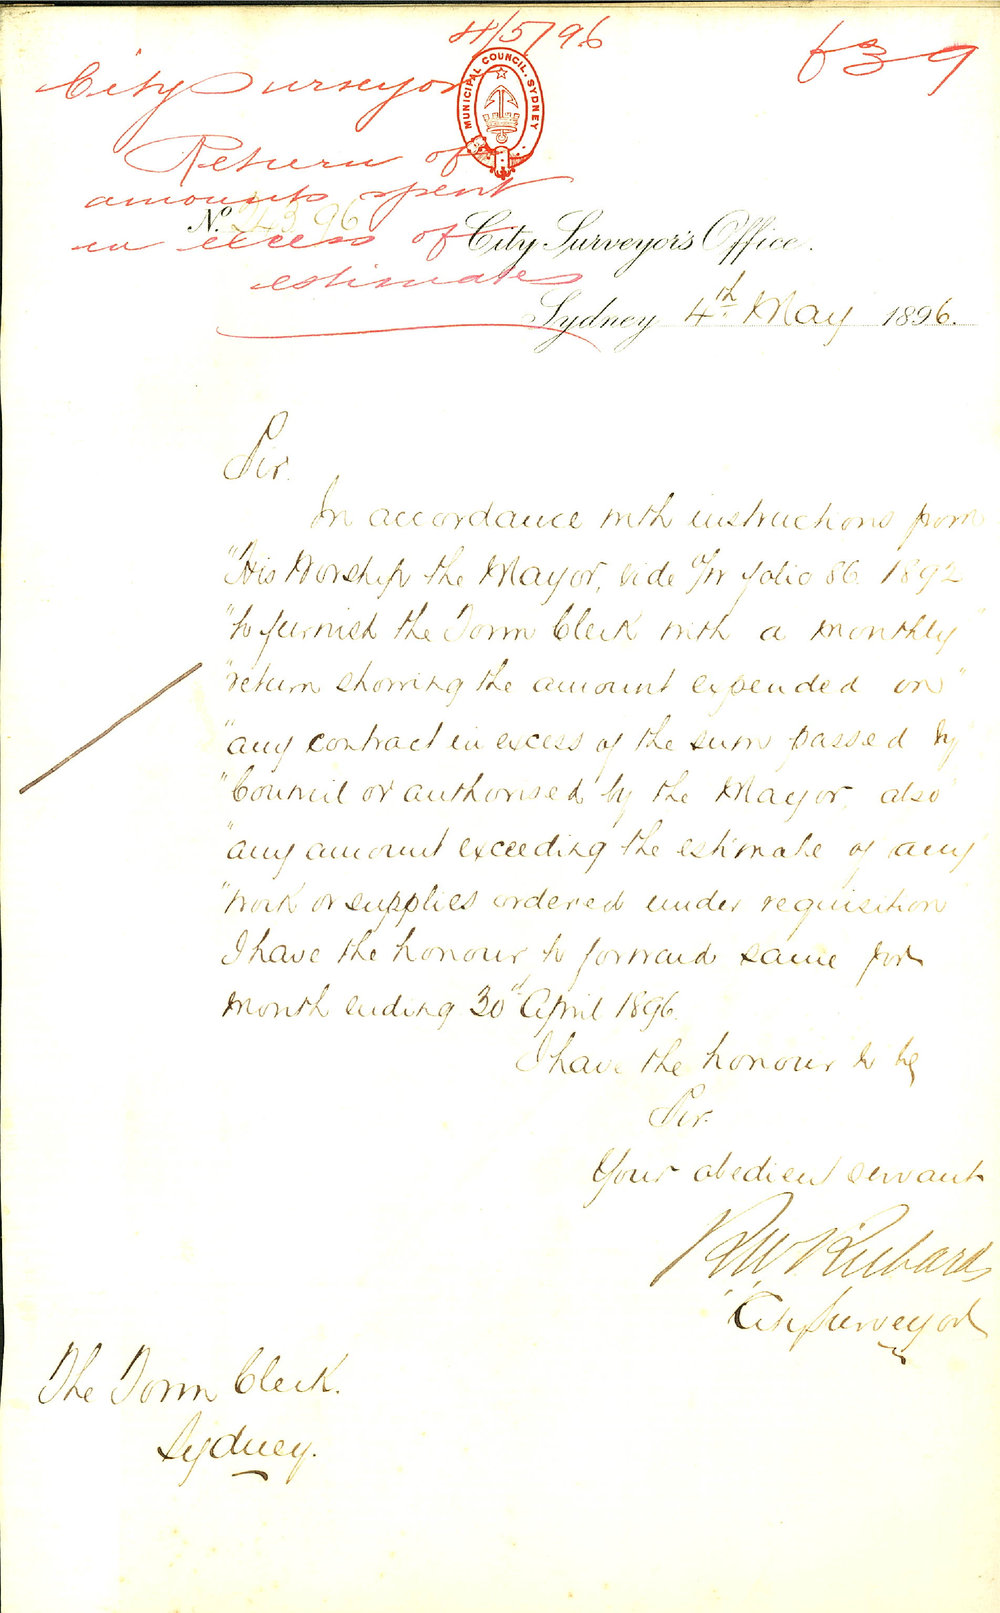 4/5/96
639
City Surveyor
MUNICIPAL COUNCIL. SYDNEY
Return of
amounts spent
in excess of
estimates
No. 243 96
City Surveyor's Office.
Sydney 4th May 1896.
Sir.
In accordance with instructions from
"His Worship the Mayor, vide folio 86. 1892
"to furnish the Town Clerk with a monthly"
"return showing the amount expended on"
"any contract in excess of the sum passed by
"Council or authorised by the Mayor, also"
"any amount exceeding the estimate of any
"work or supplies ordered under requisition"
I have the honour to forward same for
month ending 30th April 1896.
I have the honour to be
Sir.
Your obedient servant
R W Richards
City Surveyor
The Town Clerk.
Sydney.